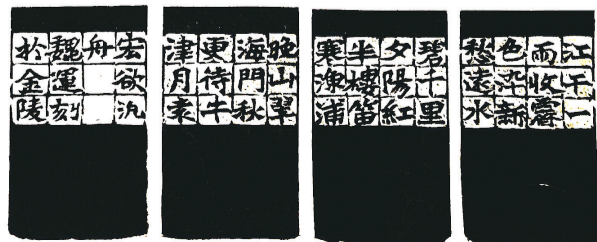 江天一
雨收霽
色染新
愁遠水
碧千里
夕陽紅
半樓笛
寒漁浦
晚山翠
海門秋
更待牛
津月袁
宏欲汎
舟
魏運刻
於金陵